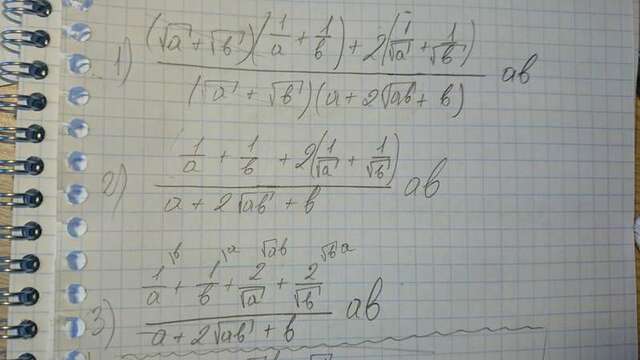 1) ((√a + √b)(1/a + 1/b) + 2(1/√a + 1/√b)) / ((√a + √b)(a + 2√ab + b)) ab
2) (1/a + 1/b + 2(1/√a + 1/√b)) / (a + 2√ab + b) ab
3) (1/a \b + 1/b \a + 2/√a \√ab + 2/√b \√b a) / (a + 2√ab + b) ab